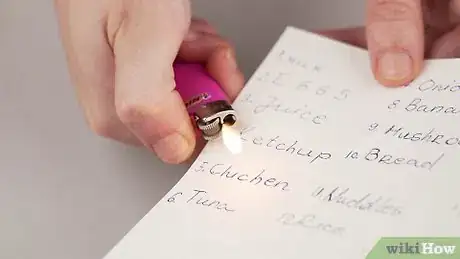 1. MILK
2. E G G S
3. Juice
Ketchup
5. Chicken
6. Tuna
8 Bana
9 Mushro
10 Bread
11. Nuddles
12. Rice
wikiHow